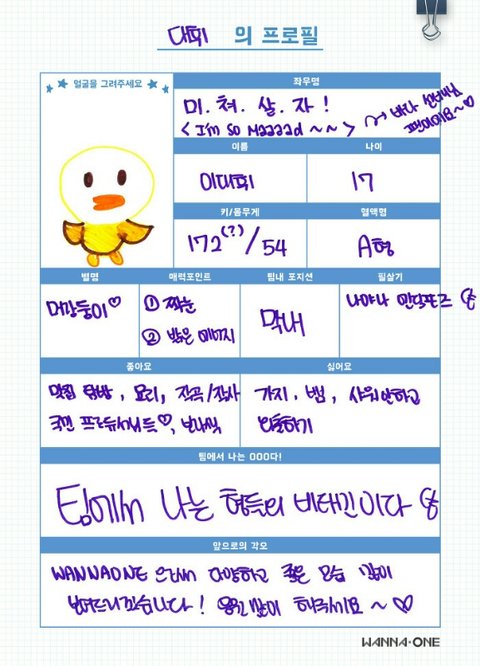 대휘 의 프로필
얼굴을 그려주세요
좌우명
미.쳐.살.자!
<I'm so Maaaad ~~> → 바다 선배님
팬이에요~♡
이름
나이
이대휘
17
키/몸무게
혈액형
172(?)/54
A형
별명
매력포인트
팀내 포지션
필살기
멍뭉이♡
① 짝눈
② 밝은 에너지
막내
나야나 엔딩포즈
좋아요
싫어요
맛집 탐방, 요리, 작곡/작사
국민 프로듀서님들♡,
가지, 뱀, 샤워안하고
외출하기
팀에서 나는 OOO다!
팀에서 나는 형들의 비타민이다
앞으로의 각오
WANNAONE 으로서 다양하고 좋은 모습 많이
보여드리겠습니다! 응원 많이 해주세요~♡
WANNA·ONE